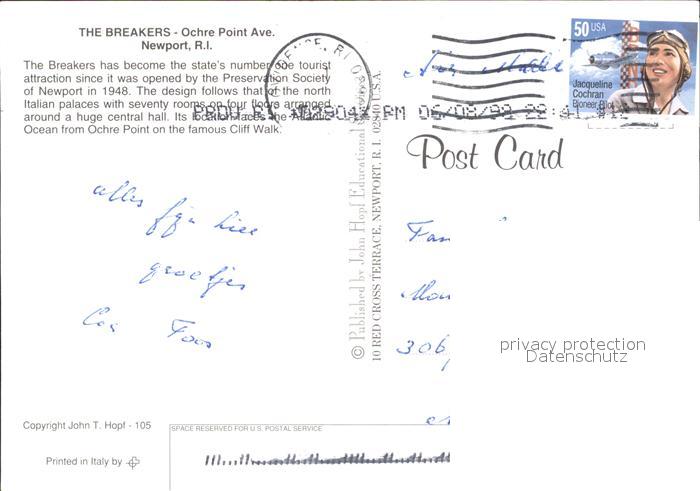 THE BREAKERS - Ochre Point Ave.
Newport, R.I.
The Breakers has become the state's number one tourist
attraction since it was opened by the Preservation Society
of Newport in 1948. The design follows that of the north
Italian palaces with seventy rooms on four floors arranged
around a huge central hall. Its location faces the Atlantic
Ocean from Ochre Point on the famous Cliff Walk.
PM 06/08/99
50 USA
Jacqueline
Cochran
Pioneer Pilot
Post Card
alles fijn hier
groetjes
Foos
© Published by John Hopf Educational
10 RED CROSS TERRACE, NEWPORT, R.I. 02840 U.S.A.
Fam
306
privacy protection
Datenschutz
Copyright John T. Hopf - 105
SPACE RESERVED FOR U.S. POSTAL SERVICE
Printed in Italy by